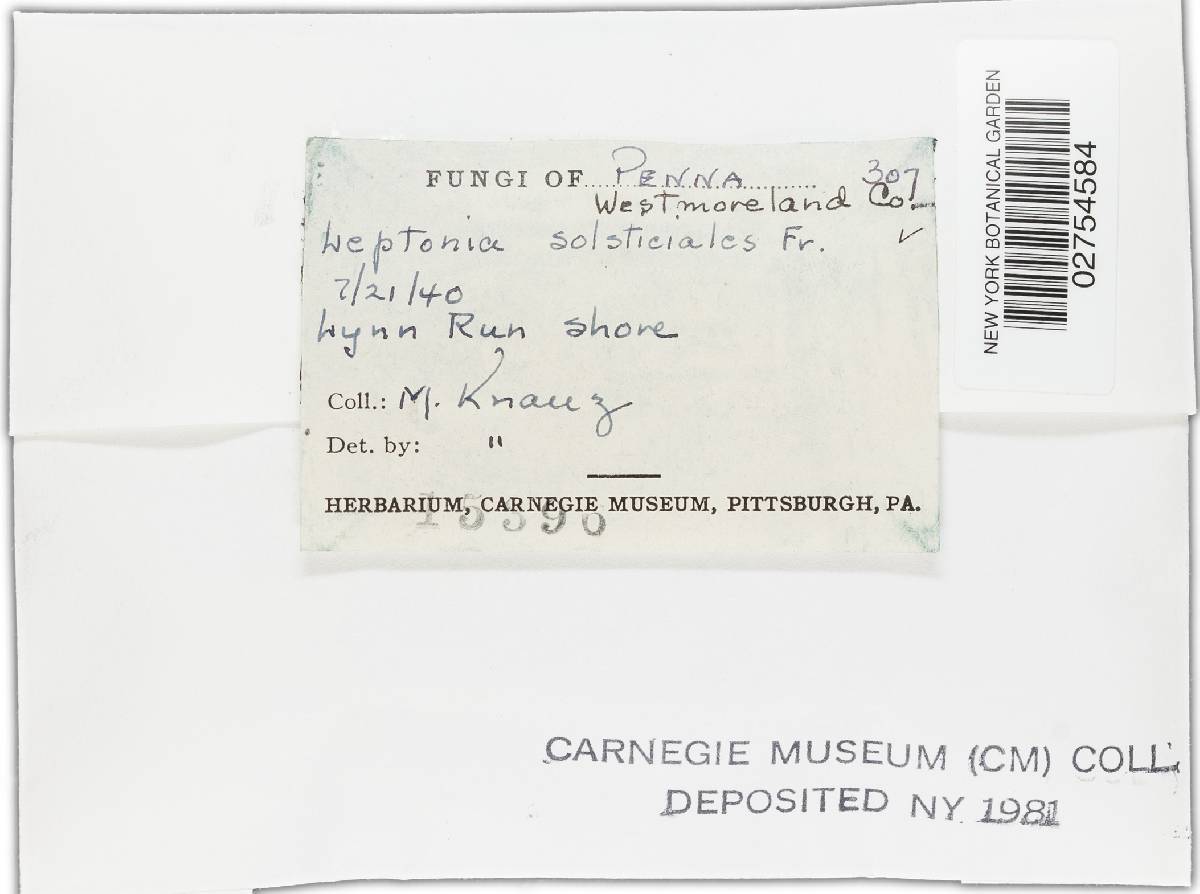 FUNGI OF PENNA 307
Westmoreland Co.
Leptonia solsticiales Fr. ✓
7/21/40
Lynn Run shore
Coll.: M. Knauz
Det. by: "
HERBARIUM, CARNEGIE MUSEUM, PITTSBURGH, PA.
NEW YORK BOTANICAL GARDEN
02754584
CARNEGIE MUSEUM (CM) COLL.
DEPOSITED NY 1981